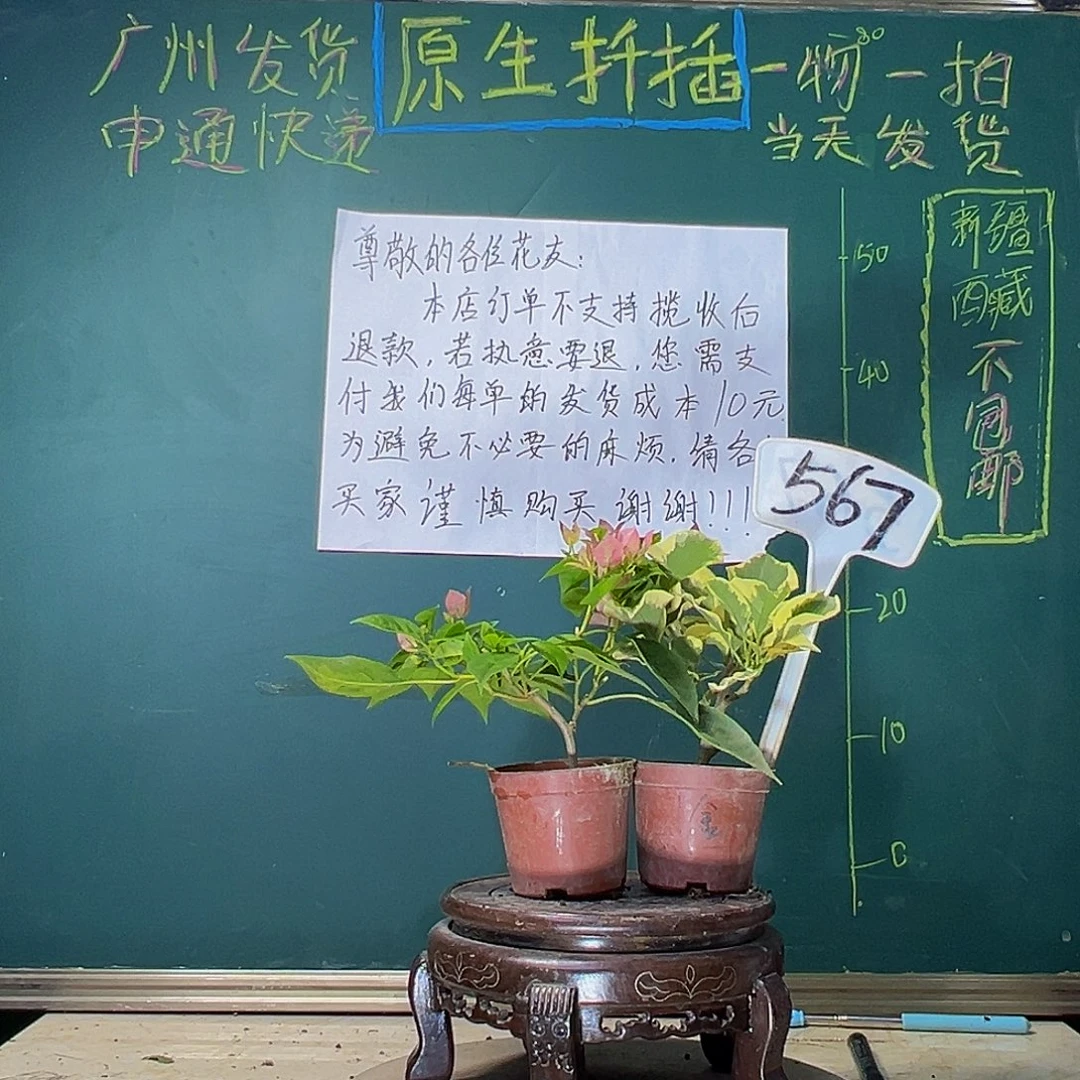 广州发货
申通快递
原生扦插
一物一拍
当天发货
尊敬的各位花友:
本店订单不支持揽收后
退款,若执意要退,您需支
付我们每单的发货成本10元
为避免不必要的麻烦,请各
买家谨慎购买 谢谢!!!
新疆
西藏
不包邮
50
40
567
20
10
0